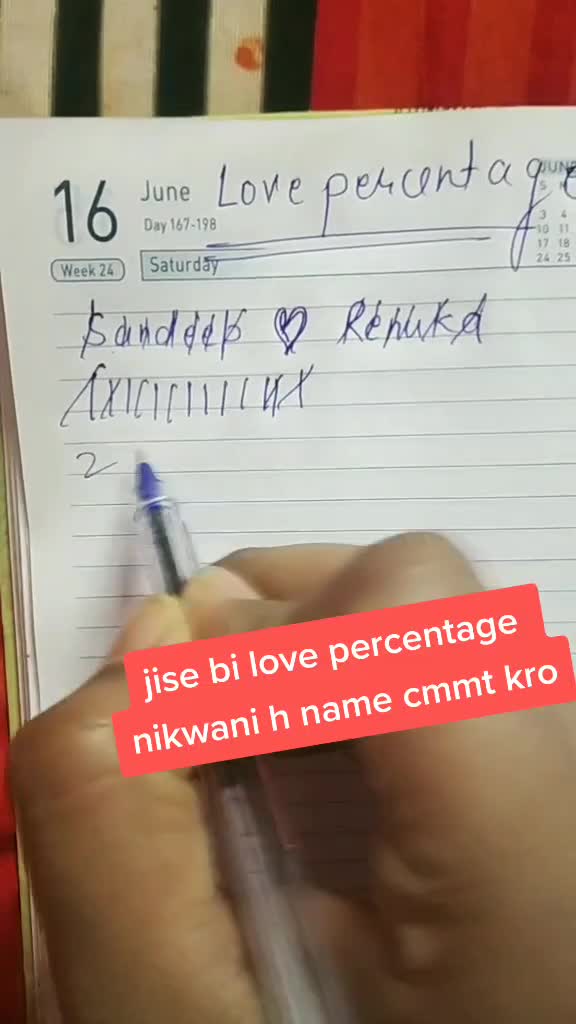 16 June Love percentage
Day 167-198
Week 24 Saturday
JUNE
S
3 4
10 11
17 18
24 25
Sandeep ♡ Renuka
2
jise bi love percentage
nikwani h name cmmt kro